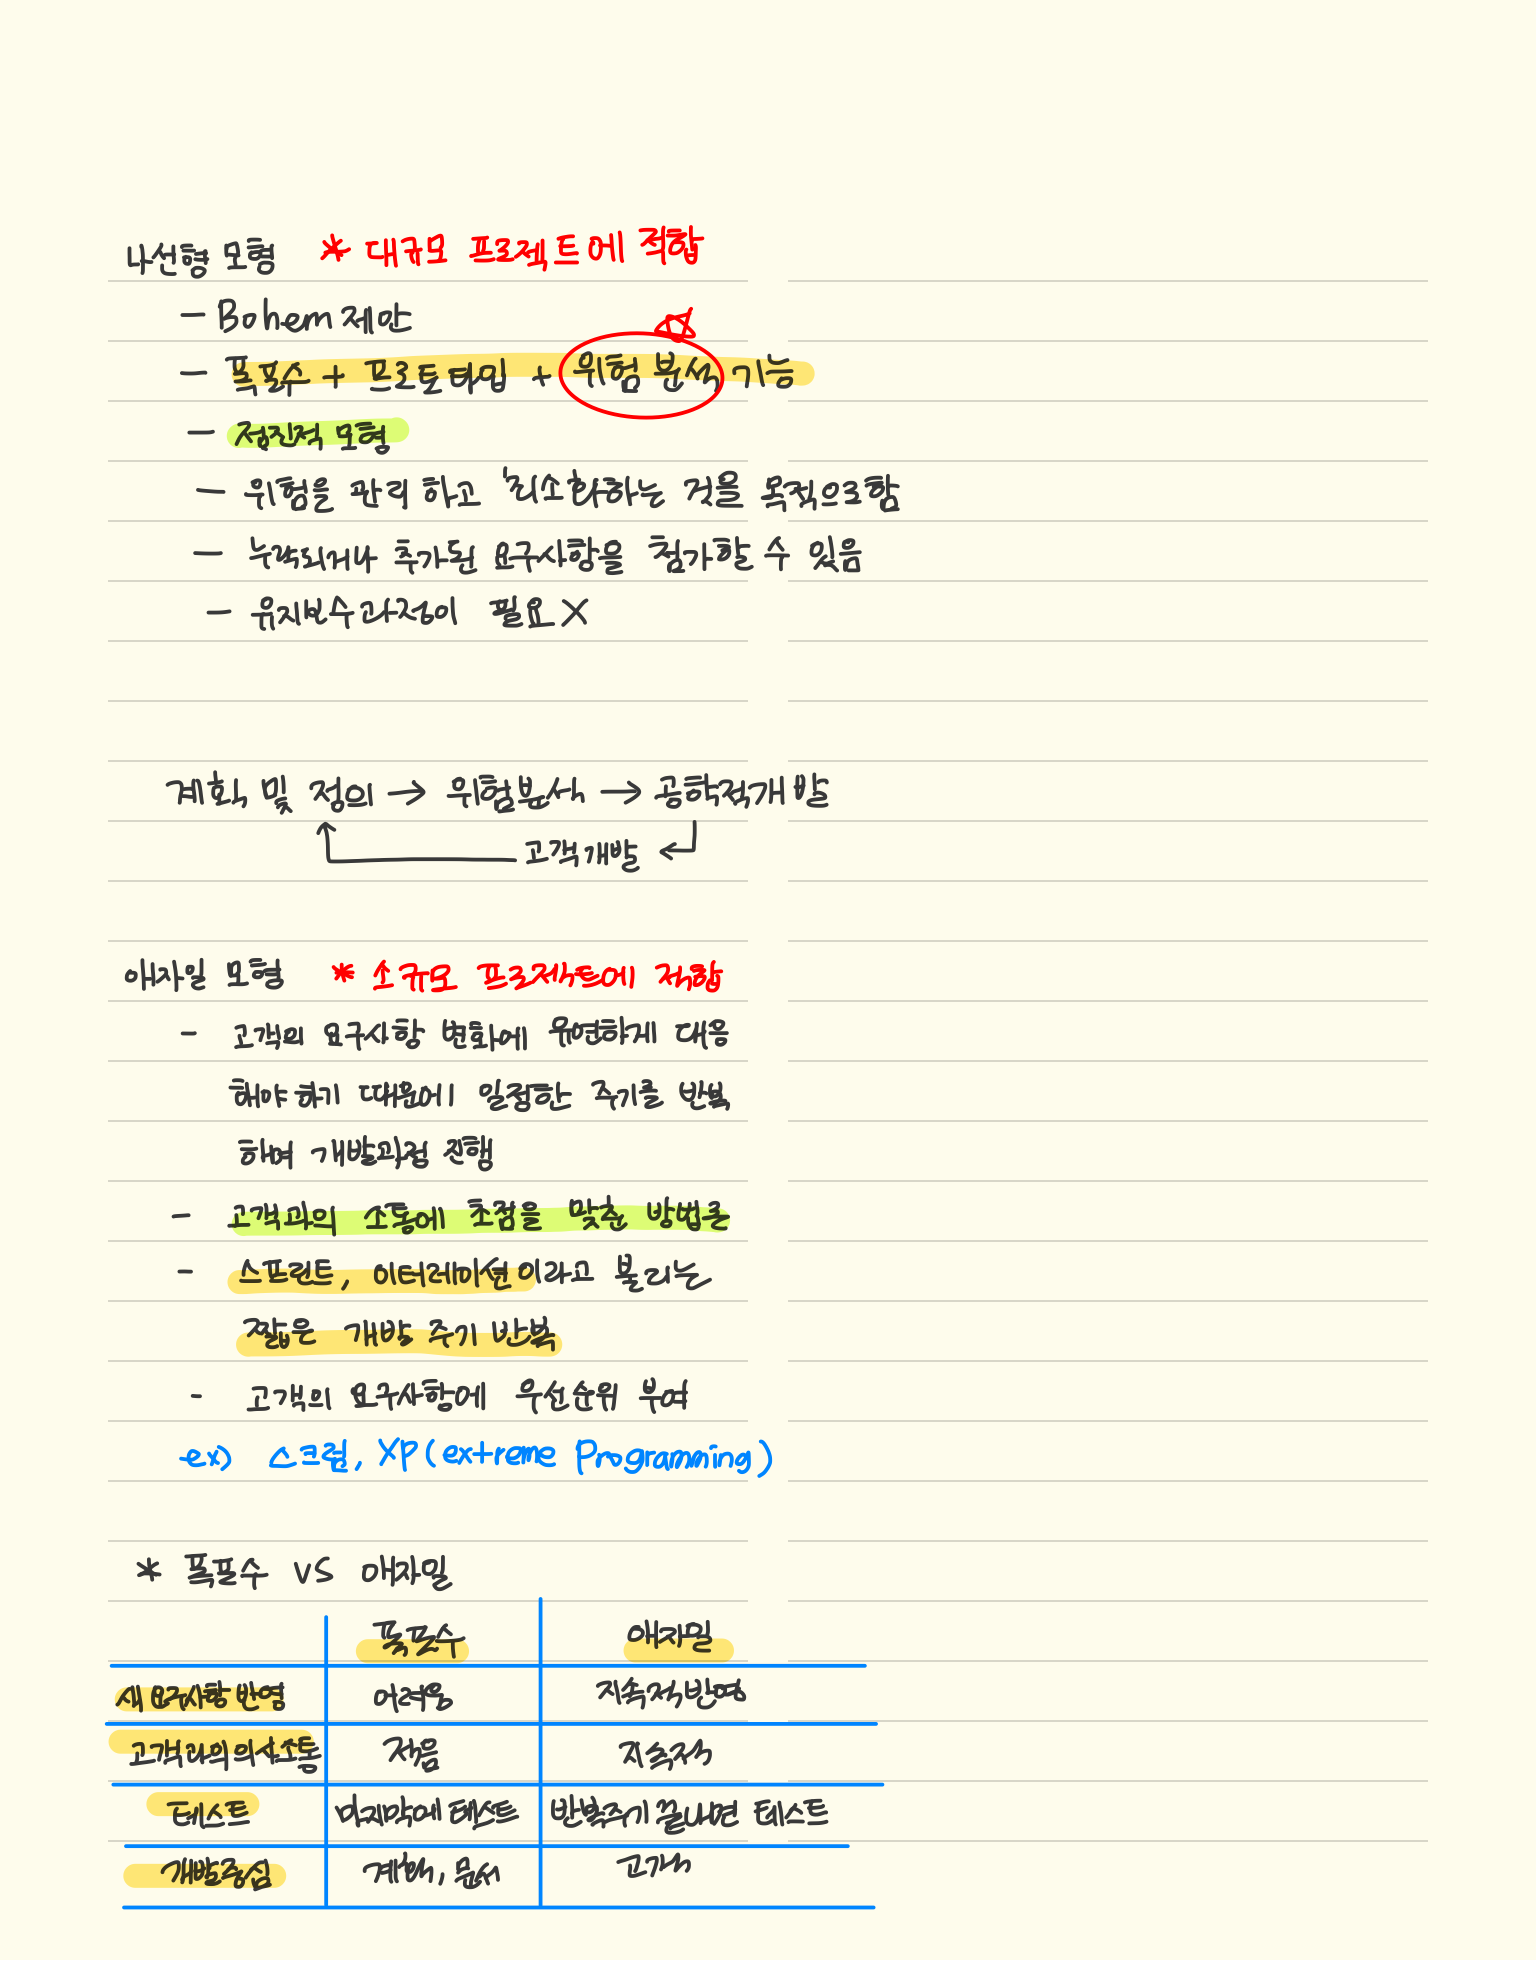 나선형 모형 * 대규모 프로젝트에 적합
- Bohem 제안
- 폭포수 + 프로토타입 + 위험 분석 기능
- 점진적 모형
- 위험을 관리 하고 최소화하는 것을 목적으로함
- 누락되거나 추가된 요구사항을 첨가할 수 있음
- 유지보수과정이 필요 X
계획 및 정의 → 위험분석 → 공학적개발
고객개발
애자일 모형 * 소규모 프로젝트에 적합
- 고객의 요구사항 변화에 유연하게 대응
해야 하기 때문에 일정한 주기를 반복
하며 개발과정 진행
- 고객과의 소통에 초점을 맞춘 방법론
- 스프린트, 이터레이션이라고 불리는
짧은 개발 주기 반복
- 고객의 요구사항에 우선순위 부여
-ex) 스크럼, XP(extreme Programming)
* 폭포수 VS 애자일
폭포수 애자일
새 요구사항 반영 어려움 지속적반영
고객과의의사소통 적음 지속적
테스트 마지막에 테스트 반복주기 끝나면 테스트
개발중심 계획, 문서 고객